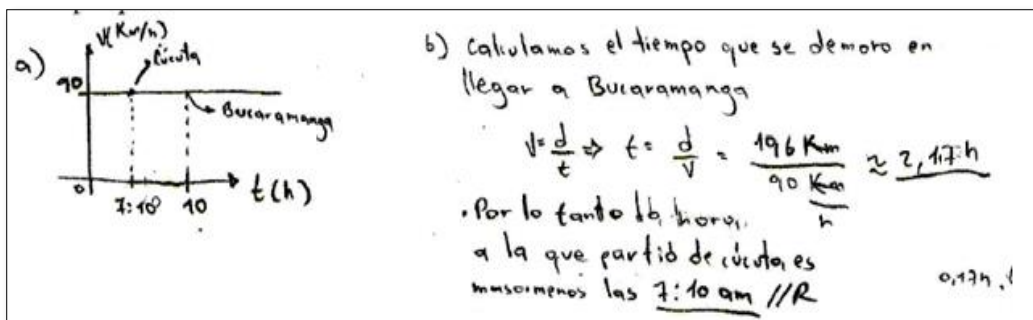 a)
V(Km/h)
Cúcuta
90
Bucaramanga
0
7:10
10
t(h)
b) Calculamos el tiempo que se demoro en
llegar a Bucaramanga
V = d/t ⇒ t = d/V = 196 Km / 90 Km/h ≈ 2,17 h
• Por lo tanto la hora
a la que partió de cúcuta es
masomenos las 7:10 am //R
0,17h